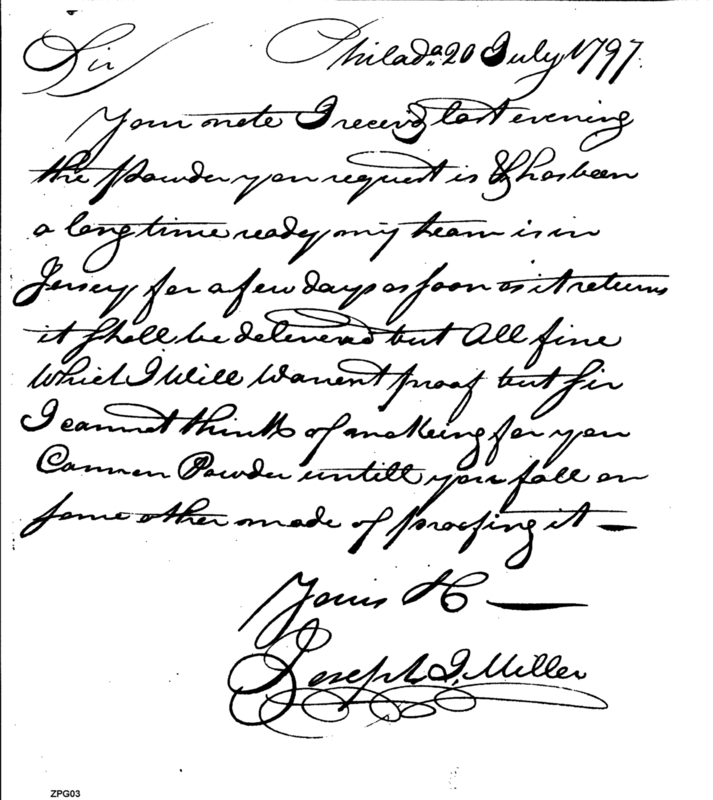 Sir Philada. 20 July 1797.
Your note I receivd last evening
the Powder you request is & has been
a long time ready my team is in
Jersey for a few days as soon as it returns
it shall be delivered but All fine
Which I Will Warrent proof but Sir
I cannot think of makeing for you
Cannon Powder untill you fall on
some other mode of proofing it —
Yours &C —
Joseph I. Miller
ZPG03